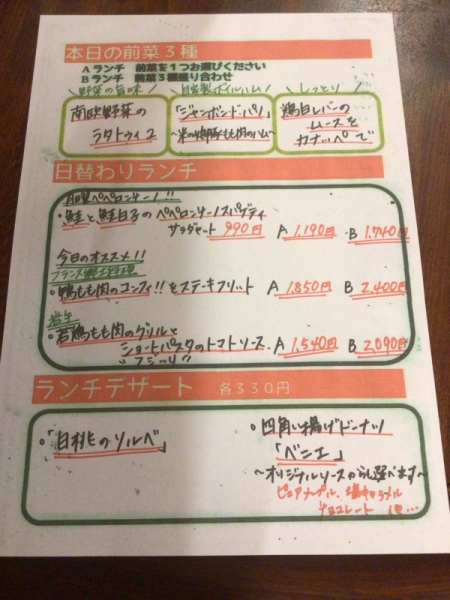 本日の前菜3種
Aランチ 前菜を1つお選びください
Bランチ 前菜3種盛り合わせ
野菜の旨味
自家製ボイルハム
しっとり
南欧野菜の
ラタトゥイユ
「ジャンボンドパリ」
もも肉のハム〜
鶏白レバーの
ムースを
カナッペで
日替わりランチ
ペペロンチーノ!!
・鮭と鮭白子のペペロンチーノスパゲティ
サラダセット 990円 A 1,190円 B 1,740円
今日のオススメ!!
フランス郷土料理
・鴨もも肉のコンフィ!!とステークフリット A 1,850 B 2,400円
・若鶏もも肉のグリルと
ショートパスタのトマトソース. A 1,540円 B 2,090円
"フジッリ"
ランチデザート 各330円
・「白桃のソルベ」
・四角い揚げドーナツ
「ベニエ」
〜オリジナルソースから選べます〜
ピュアメープル、塩キャラメル
チョコレート 他…